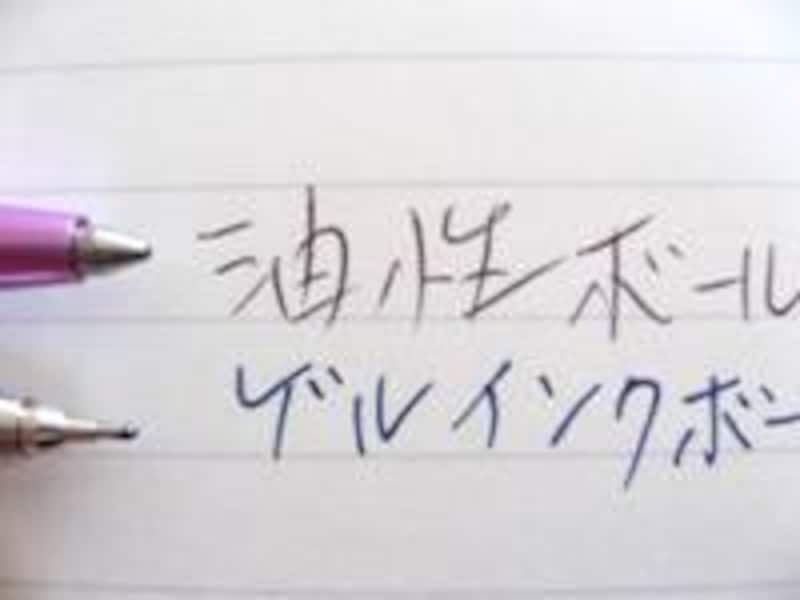 油性ボール
ゲルインクボー